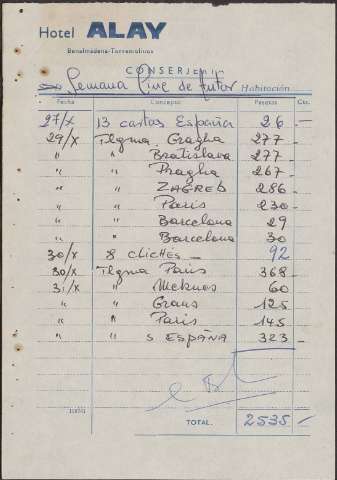 Hotel ALAY
Benalmádena-Torremolinos
CONSERJERIA
Semana Cine de Autor Habitación
Fecha Concepto Pesetas Cts.
27/X 13 cartas España 26 -
29/X Tlgma. Gragha 277 -
" " Bratislava 277 -
" " Praglia 267 -
" " ZAGREB 286 -
" " Paris 230 -
" " Barcelona 29
" " Barcelona 30
30/X 8 clichés - 92
30/X Tlgma Paris 368 -
31/X " Meknes 60
" " Graus 125
" " Paris 145
" " 5 ESPAÑA 323 -
TOTAL. 2535.-